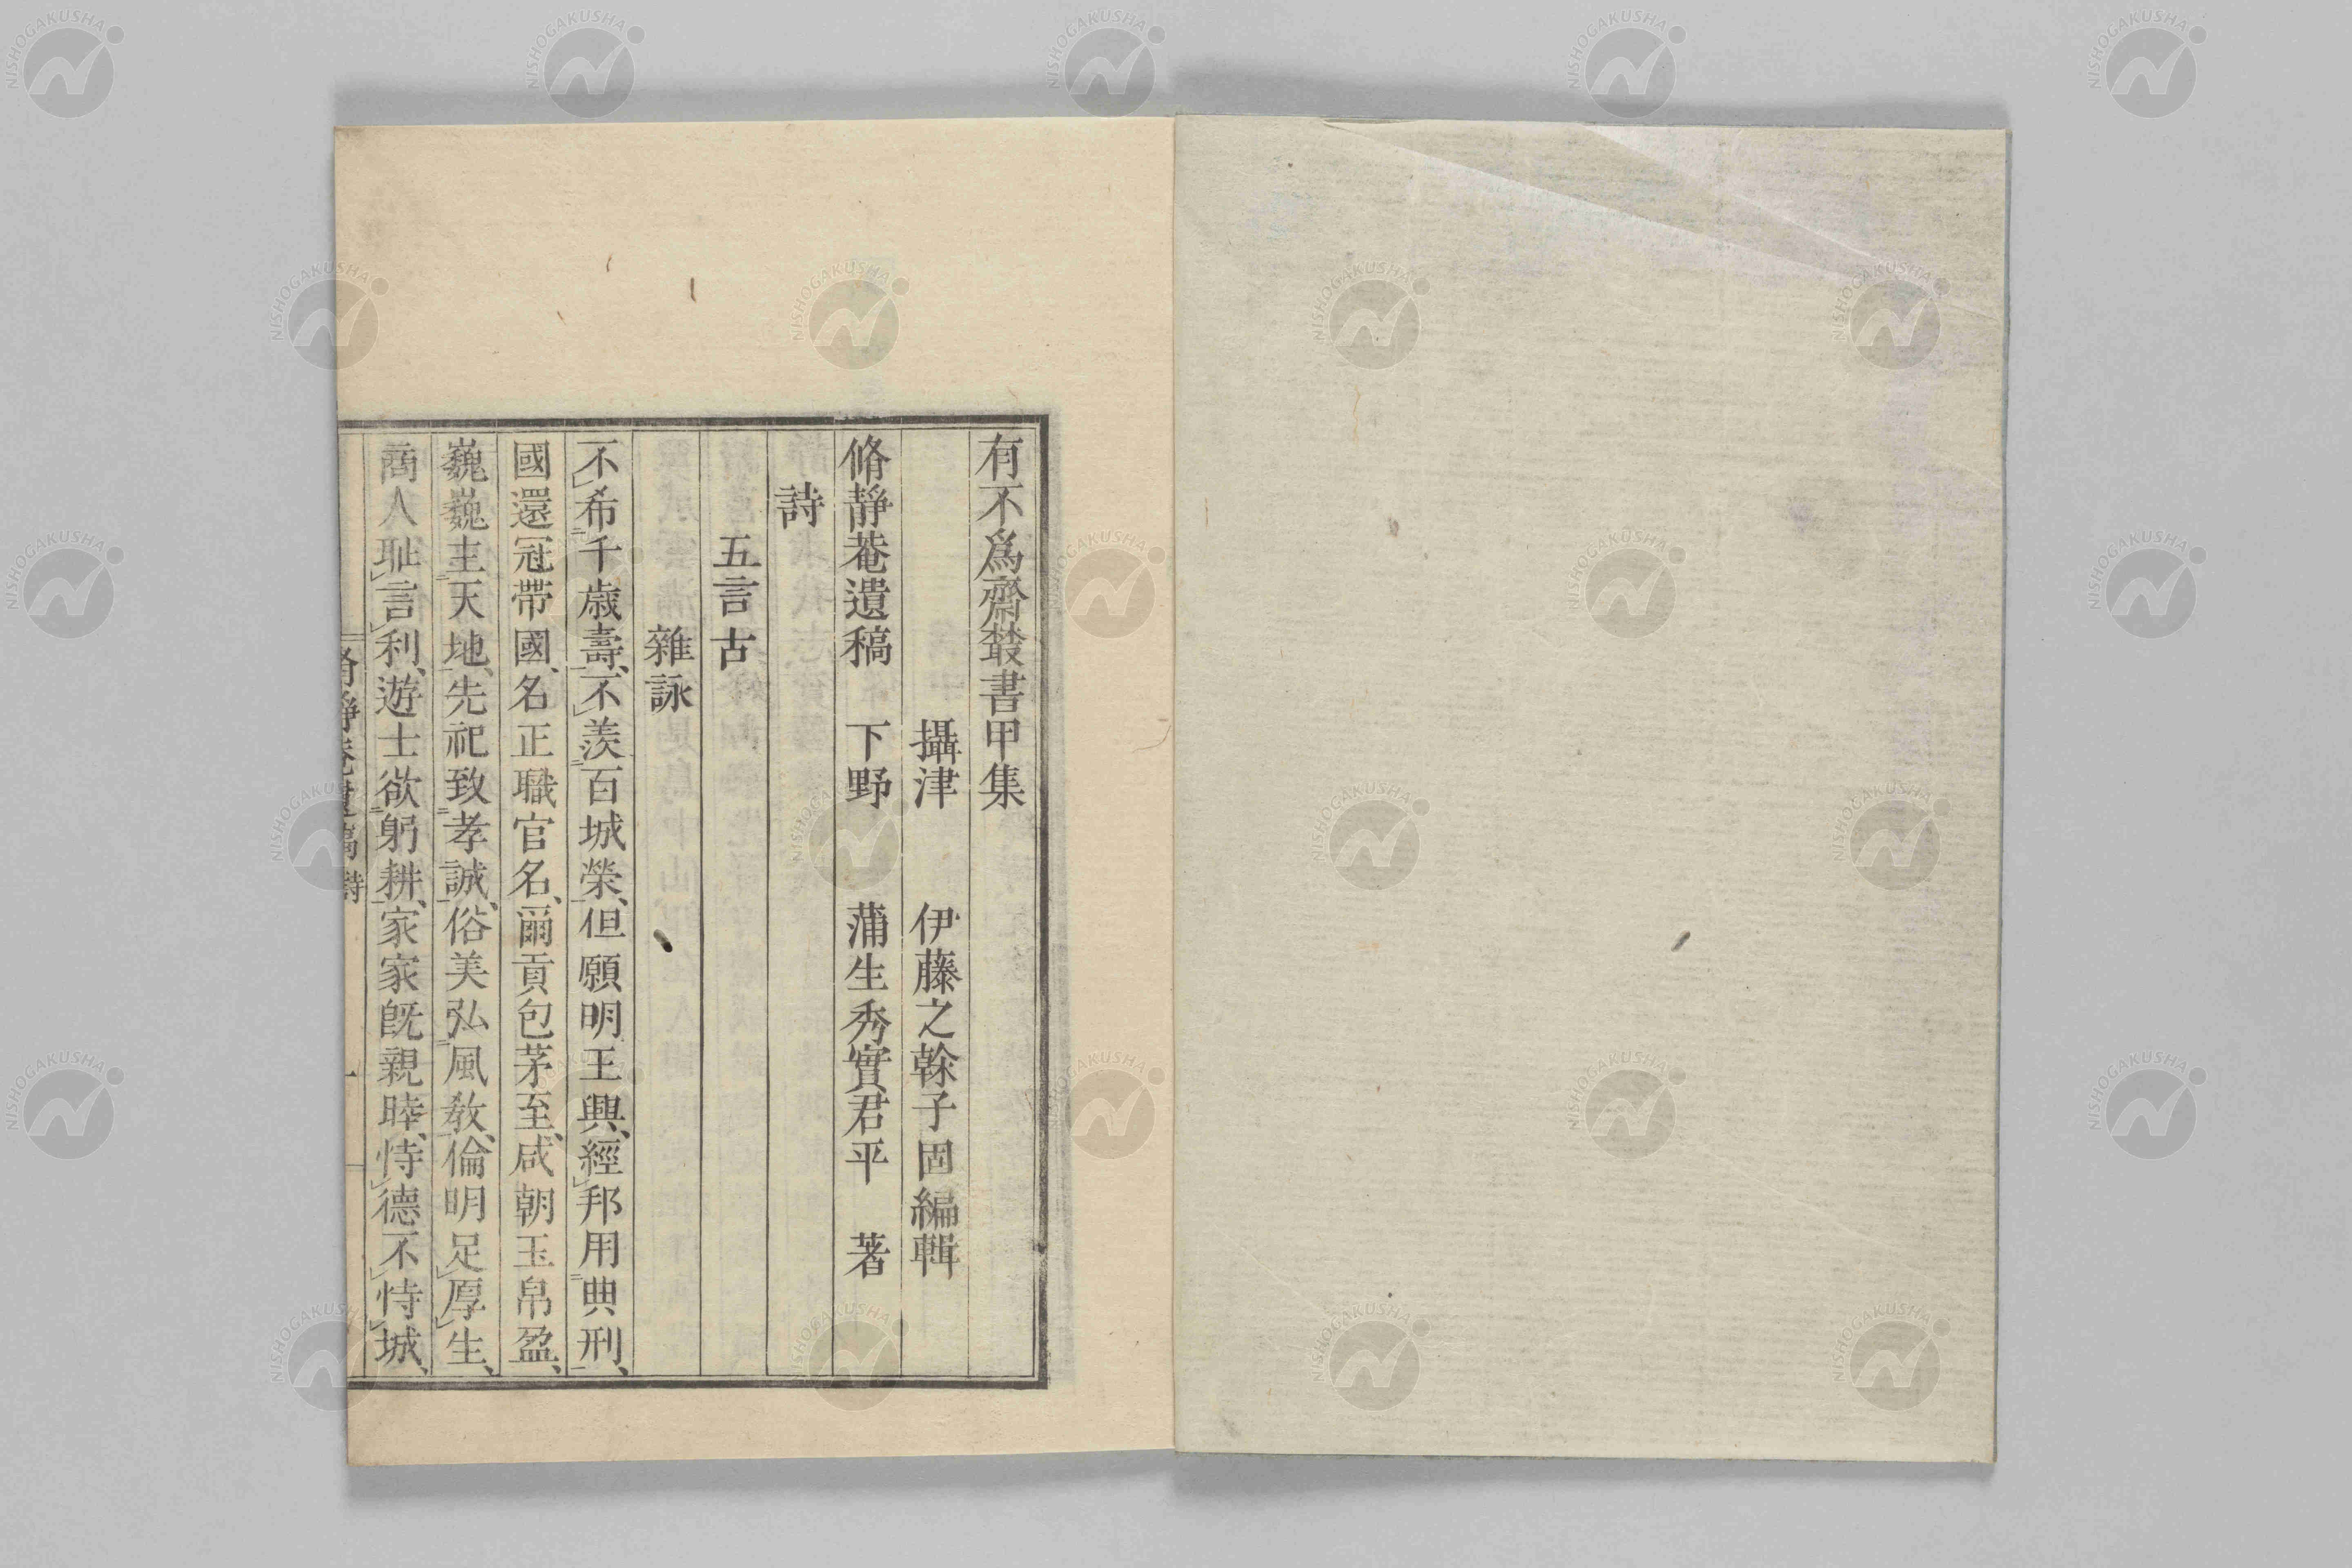 有不爲齋叢書甲集
攝津　伊藤之幹子固編輯
脩靜菴遺稿　下野　蒲生秀實君平　著
詩
五言古
雜詠
不希千歳壽、不羨百城榮、但願明王興、經邦用典刑、
國還冠帶國、名正職官名、爾貢包茅至、咸朝玉帛盈、
巍巍主天地、先祀致孝誠、俗美弘風敎、倫明足厚生、
商人耻言利、遊士欲躬耕、家家旣親睦、恃德不恃城、
脩靜菴遺稿 詩 一
NISHOGAKUSHA